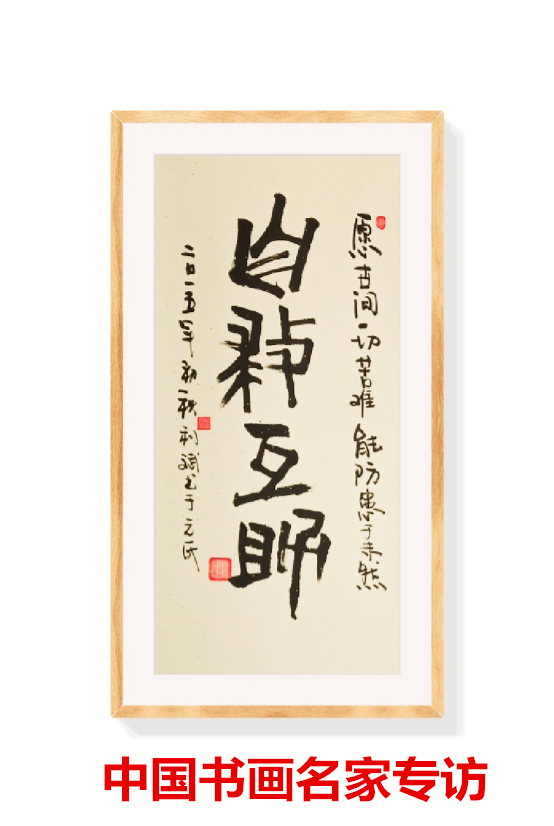 愿世间一切苦难能防患于未然
自救互助
二〇一五年初秋利斌书于元氏
中国书画名家专访